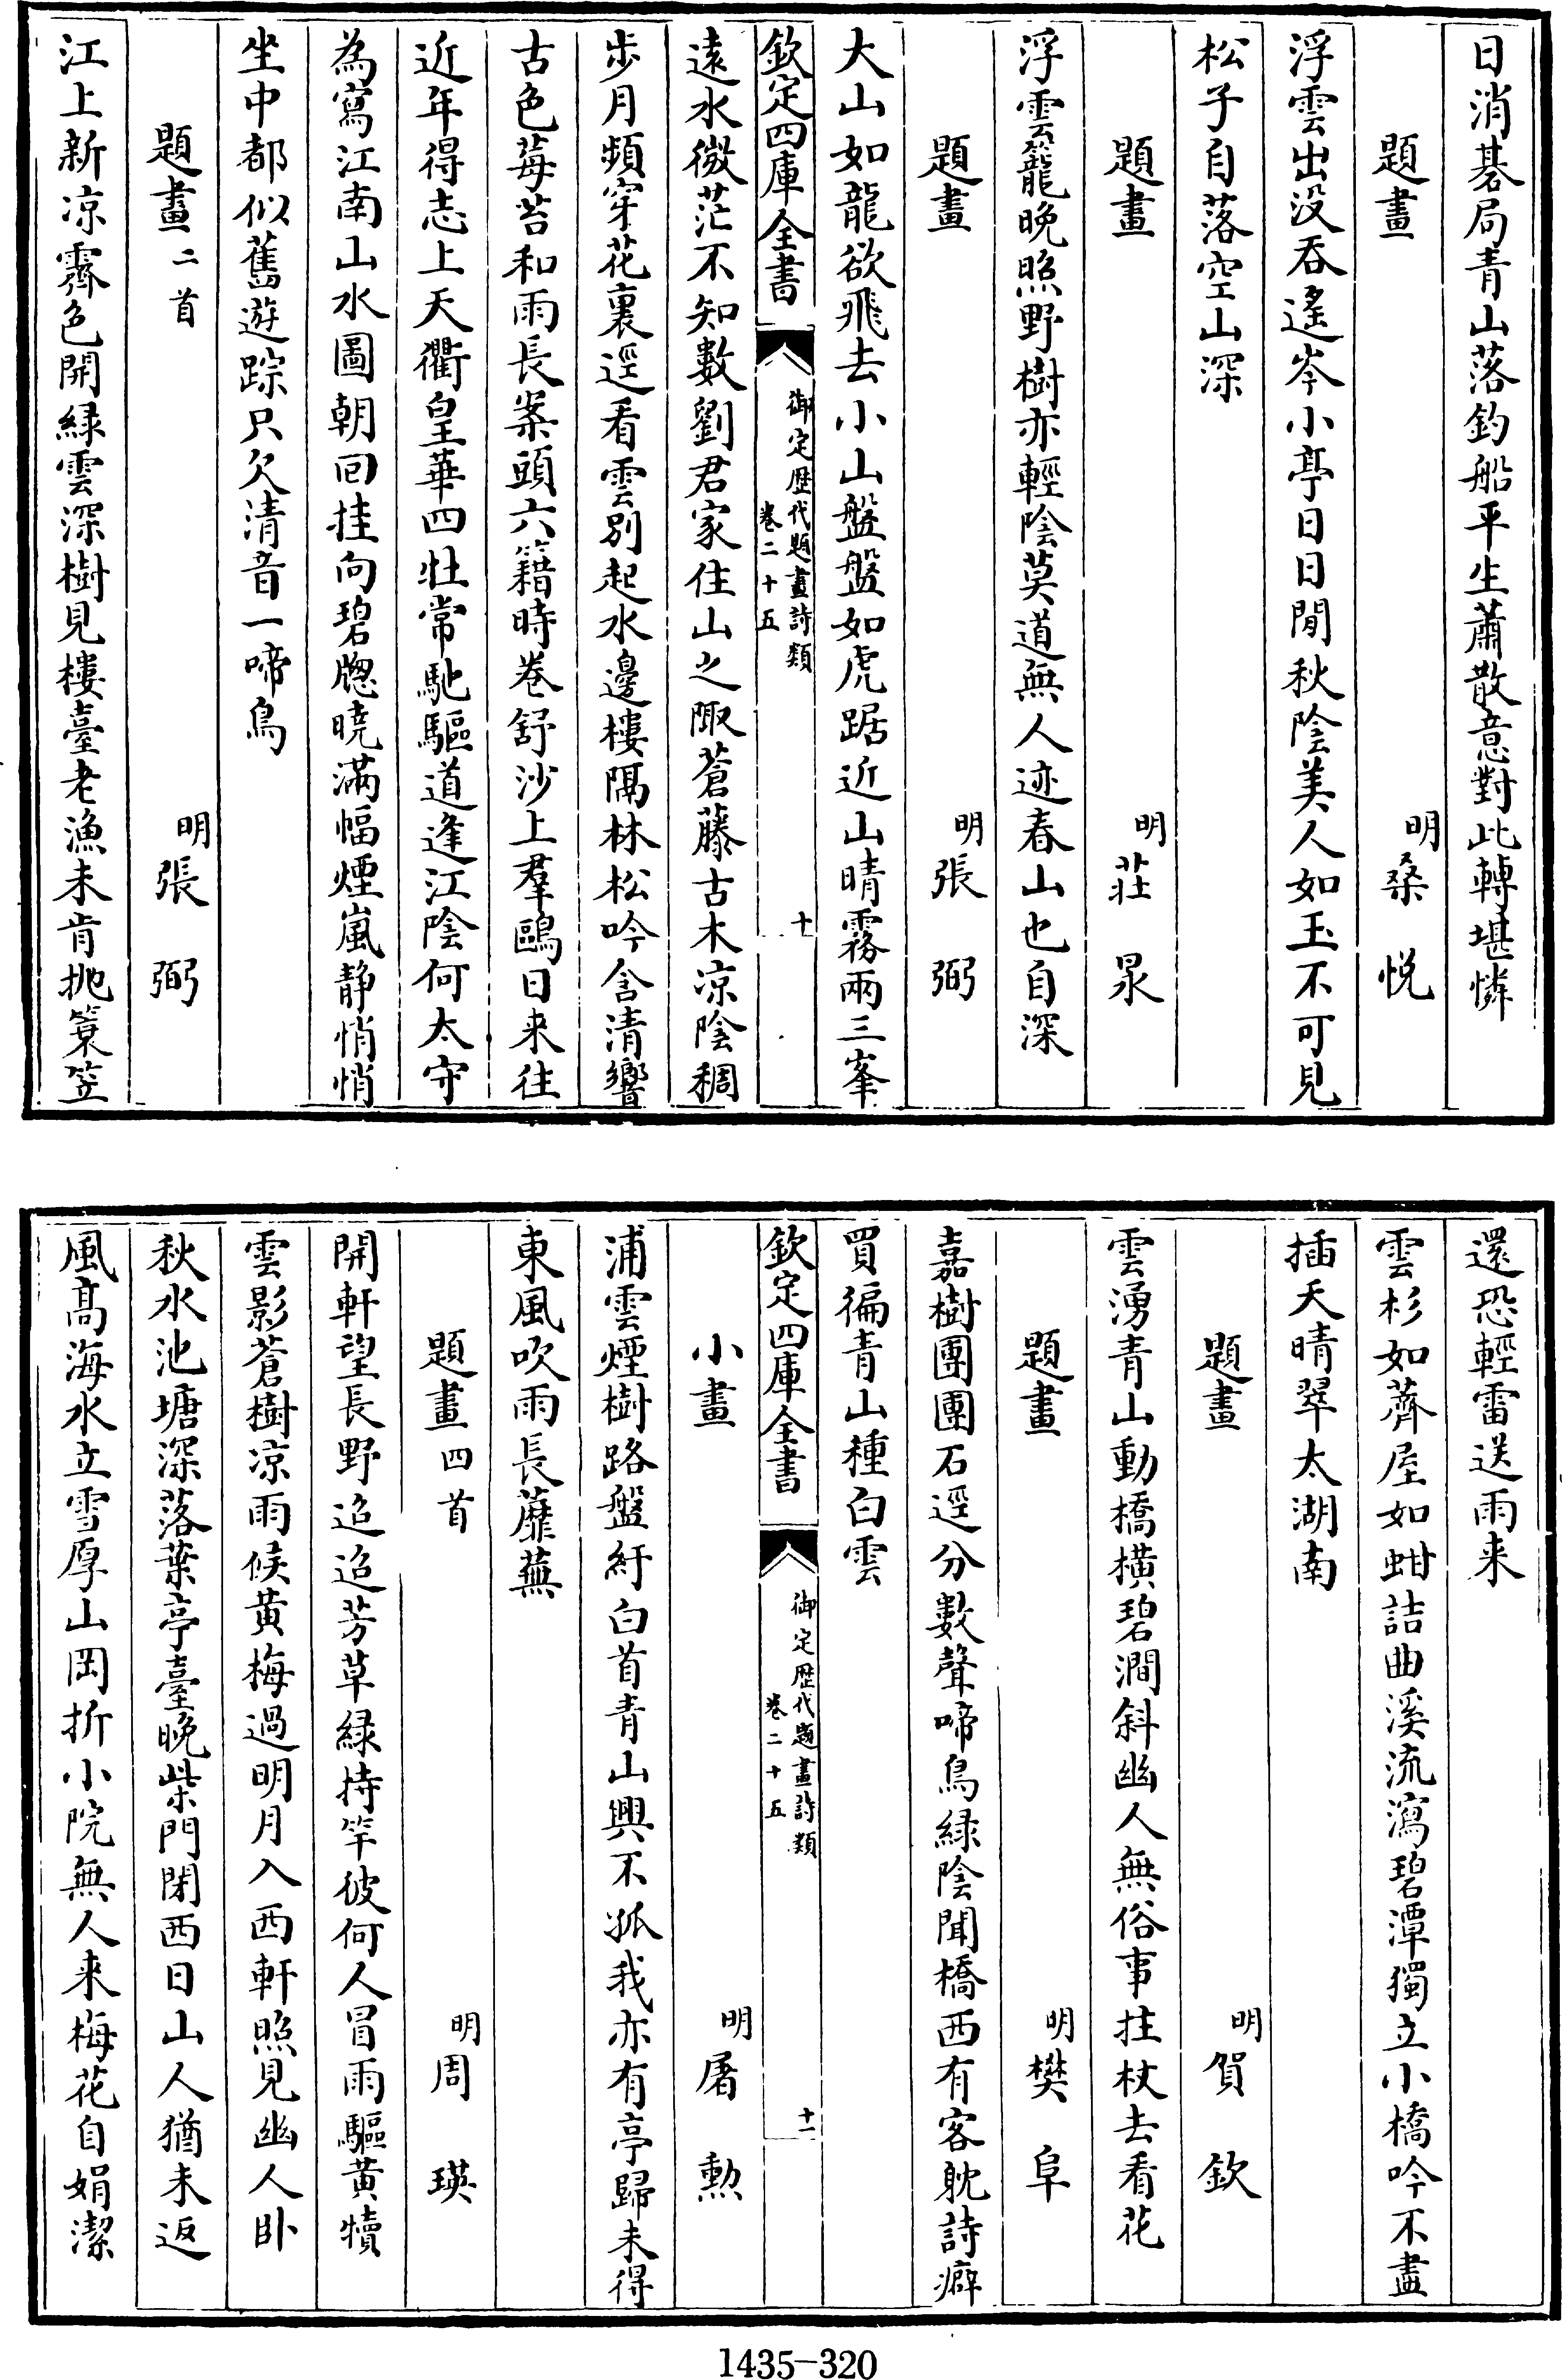 日消碁局青山落釣船平生蕭散意對此轉堪憐
題畫 明桑悅
浮雲出没吞遙岑小亭日日閒秋陰美人如玉不可見
松子自落空山深
題畫 明莊泉
浮雲籠晚照野樹亦輕陰莫道無人迹春山也自深
題畫 明張弼
大山如龍欲飛去小山盤盤如虎踞近山晴霧兩三峯
欽定四庫全書 御定歴代題畫詩類 卷二十五 十
遠水微茫不知數劉君家住山之陬蒼藤古木凉陰稠
步月頻穿花裏逕看雲別起水邊樓隔林松吟含清響
古色莓苔和雨長案頭六籍時卷舒沙上羣鷗日来往
近年得志上天衢皇華四牡常馳驅道逢江陰何太守
為寫江南山水圖朝回挂向碧牕曉滿幅煙嵐静悄悄
坐中都似舊遊踪只欠清音一啼鳥
題畫二首 明張弼
江上新凉霽色開緑雲深樹見樓臺老漁未肯抛簔笠
還恐輕雷送雨来
雲杉如薺屋如蚶詰曲溪流瀉碧潭獨立小橋吟不盡
插天晴翠太湖南
題畫 明賀欽
雲湧青山動橋横碧澗斜幽人無俗事拄杖去看花
題畫 明樊阜
嘉樹團團石逕分數聲啼鳥緑陰聞橋西有客躭詩癖
買徧青山種白雲
欽定四庫全書 御定歴代題畫詩類 卷二十五 十一
小畫 明屠勲
浦雲煙樹路盤紆白首青山興不孤我亦有亭歸未得
東風吹雨長蘼蕪
題畫四首 明周瑛
開軒望長野迢迢芳草緑持竿彼何人冒雨驅黄犢
雲影蒼樹凉雨候黄梅過明月入西軒照見幽人卧
秋水池塘深落葉亭臺晚柴門閉西日山人猶未返
風髙海水立雪厚山岡折小院無人来梅花自娟潔
1435-320